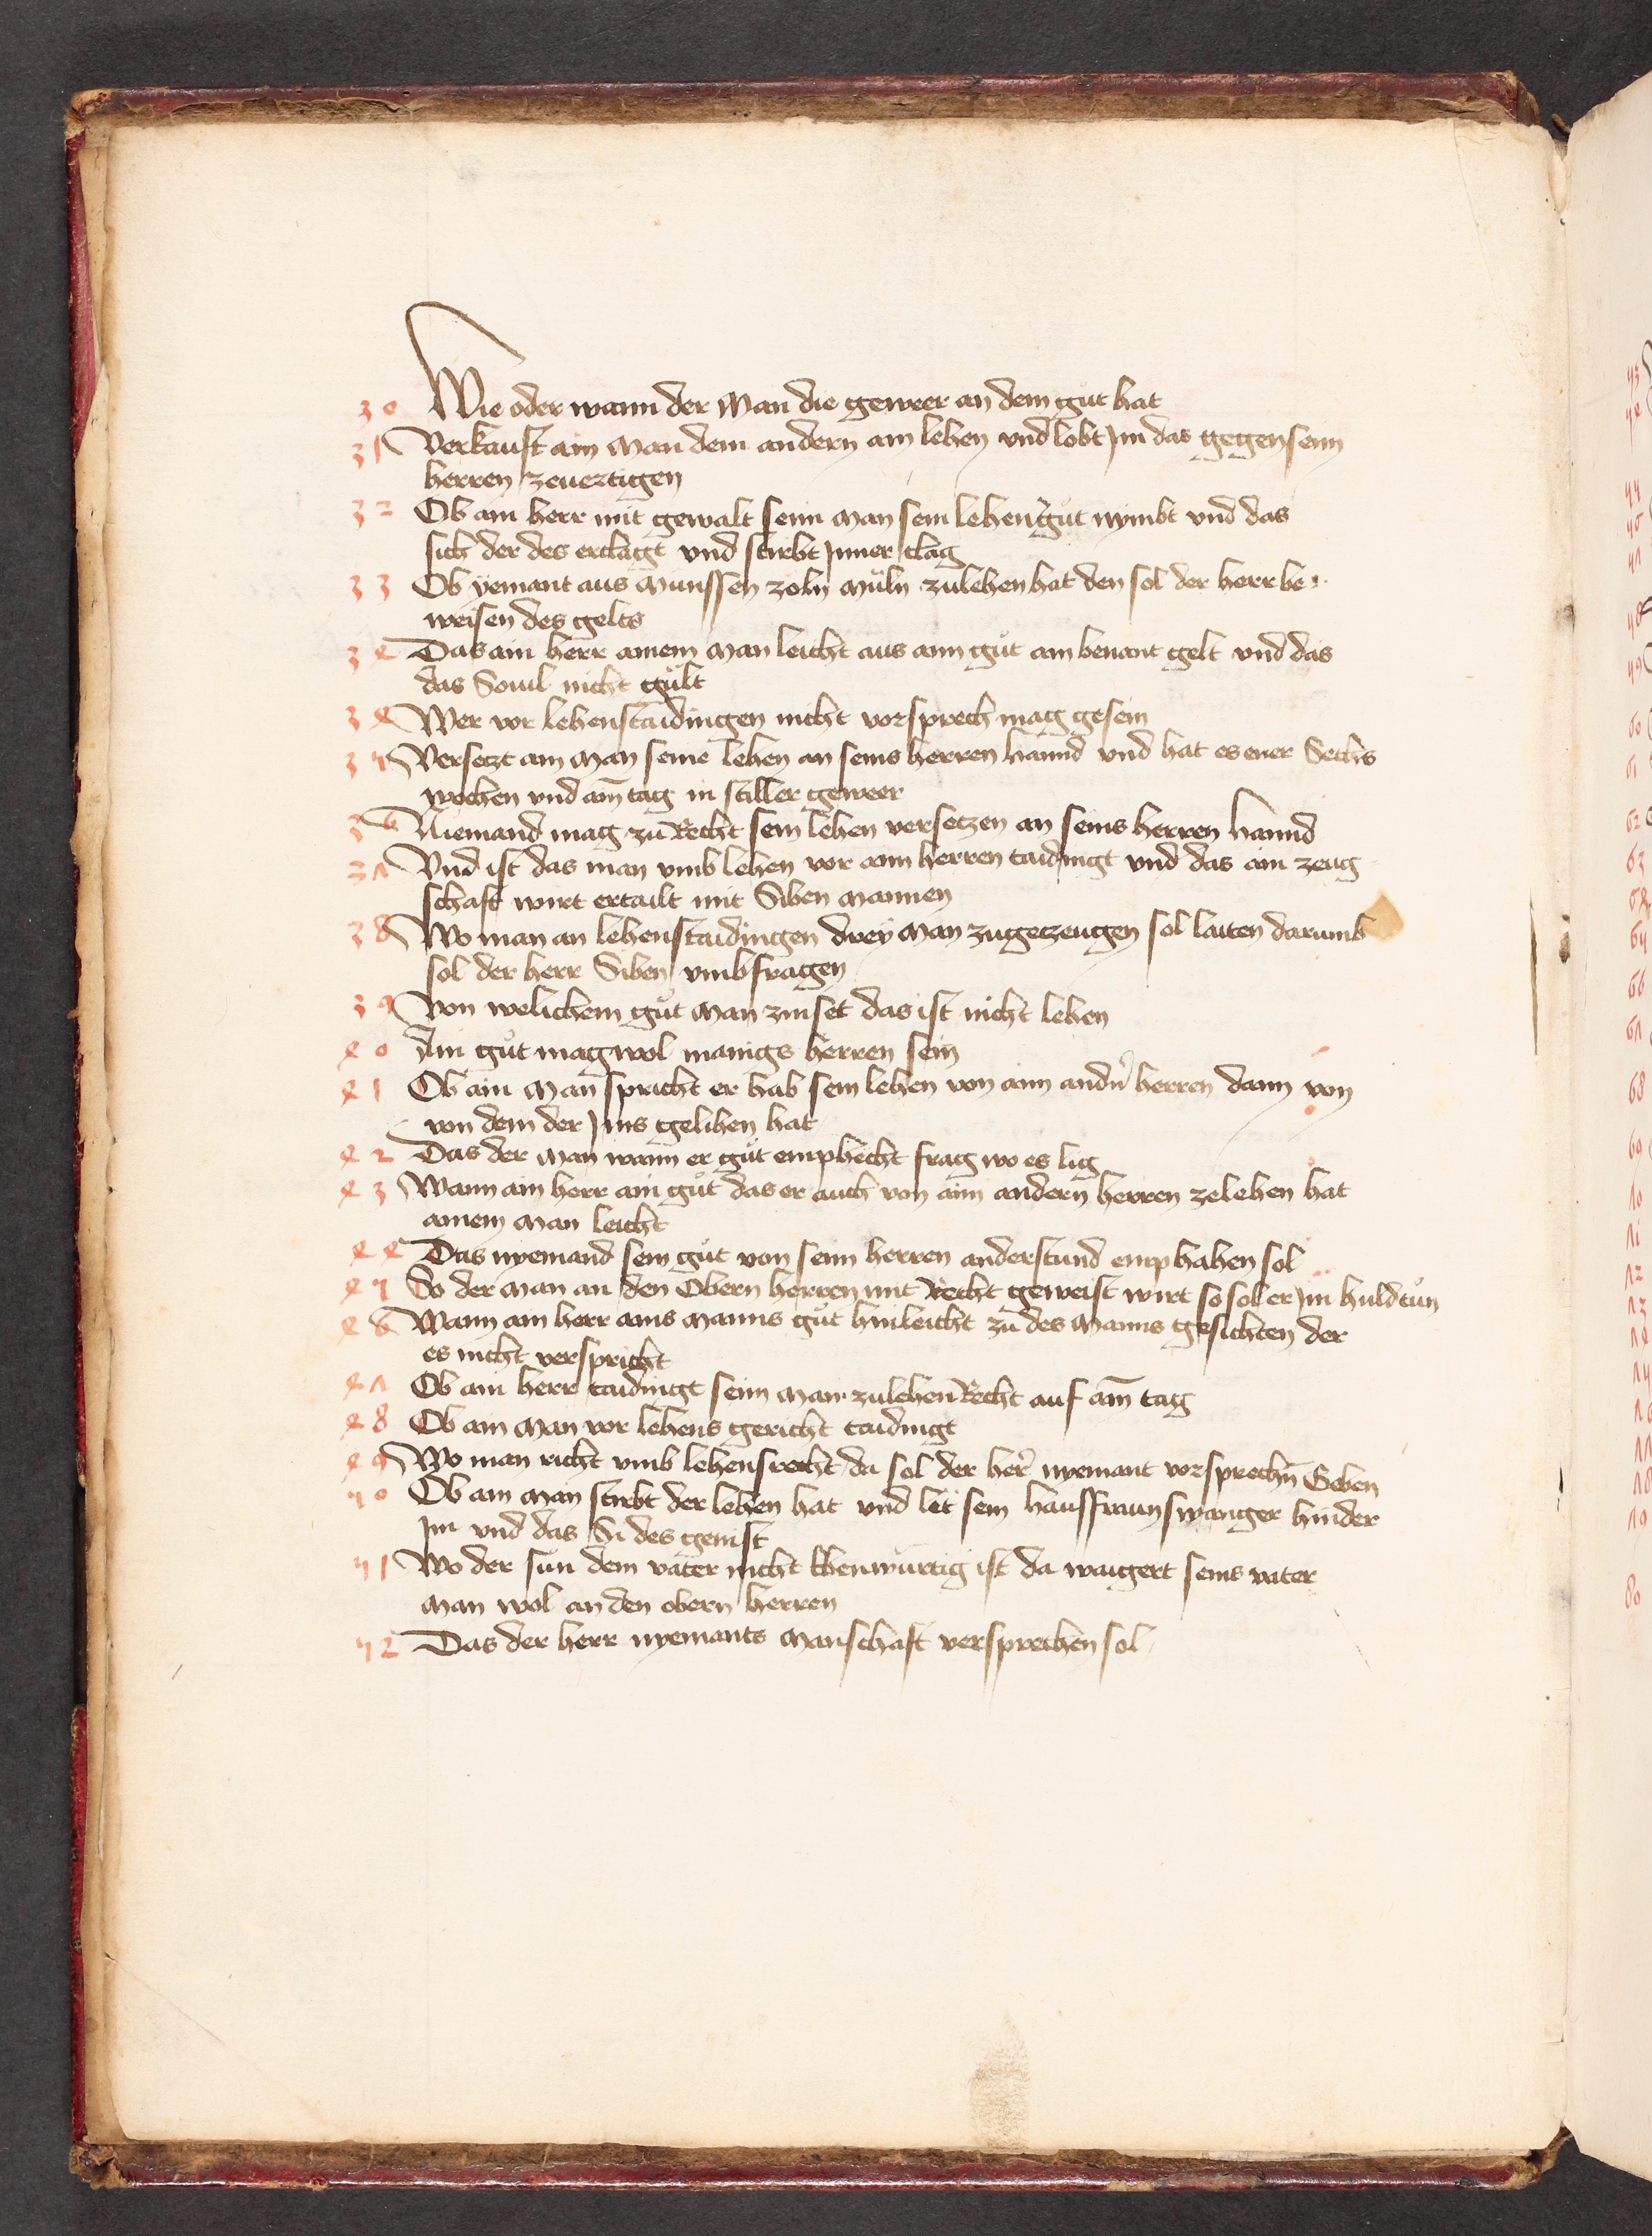 30 Wie oder wann der Man die gewer an dem gut hat
31 Verkauft ain Man dem andern ain lehen vnd lobt Jm das gegen seim
herren zeuertigen
32 Ob ain herr mit gewalt seim man sein lehengůt nymbt vnd das
sich der des erclagt vnd stirbt Jnner clag
33 Ob yemant aus Münssen zoln Müln zulehen hat den sol der herr be
weisen des gelts
34 Das ain herr ainem Man leicht aus aim gůt ain benant gelt vnd das
das Souil nicht gült
34 Wer vor lehenstaidingen nicht vorsprech mag gesein
35 Versetzt ain Man seine lehen an seins herren hannd vnd hat es ener Sechs
wochen vnd ain tag in stiller geweer
36 Niemand mag zu Recht sein lehen versetzen an seins herren hannd
37 Vnd ist das man vmb lehen vor aim herren taidingt vnd das ain zeug
schaft wirt ertailt mit Siben mannen
38 Wo man an lehenstaidingen drey Man zugetzeugen sol laiten darumb
sol der herr Siben vmbfragen
39 Von welichem gůt Man zinset das ist nicht lehen
40 Ain gůt mag wol manigs herren sein
41 Ob ain Man spricht er hab sein lehen von aim andn̄ herren dann von
von dem der Jms gelihen hat
42 Das der Man wann er gůt emphecht frag wo es lig
43 Wann ain herr ain gůt das er auch von aim andern herren zelehen hat
ainem Man leicht
44 Das nyemand sein gůt von seim herren anderstund emphahen sol
45 So der Man an den Obern herren mit Recht geweist wirt so sol er Jm huld tůn
46 Wann ain herr ains Manns gůt hinleicht zu des Manns gesichten der
es nicht verspricht
47 Ob ain herr taidingt seim Man zulehen Recht auf ain tag
48 Ob ain Man vor lehens gericht taidingt
49 Wo man richt vmb lehensrecht da sol der her̄ nyemant vorsprechn̄ Geben
50 Ob ain Man stirbt der lehen hat vnd let sein hausfraun swanger hinder
Jm vnd das Si des genist
51 Wo der sun dem vater nicht Ebenwürtig ist da waigert seins vater
Man wol an den obern herren
52 Das der herr nyemants Manschaft versprechen sol